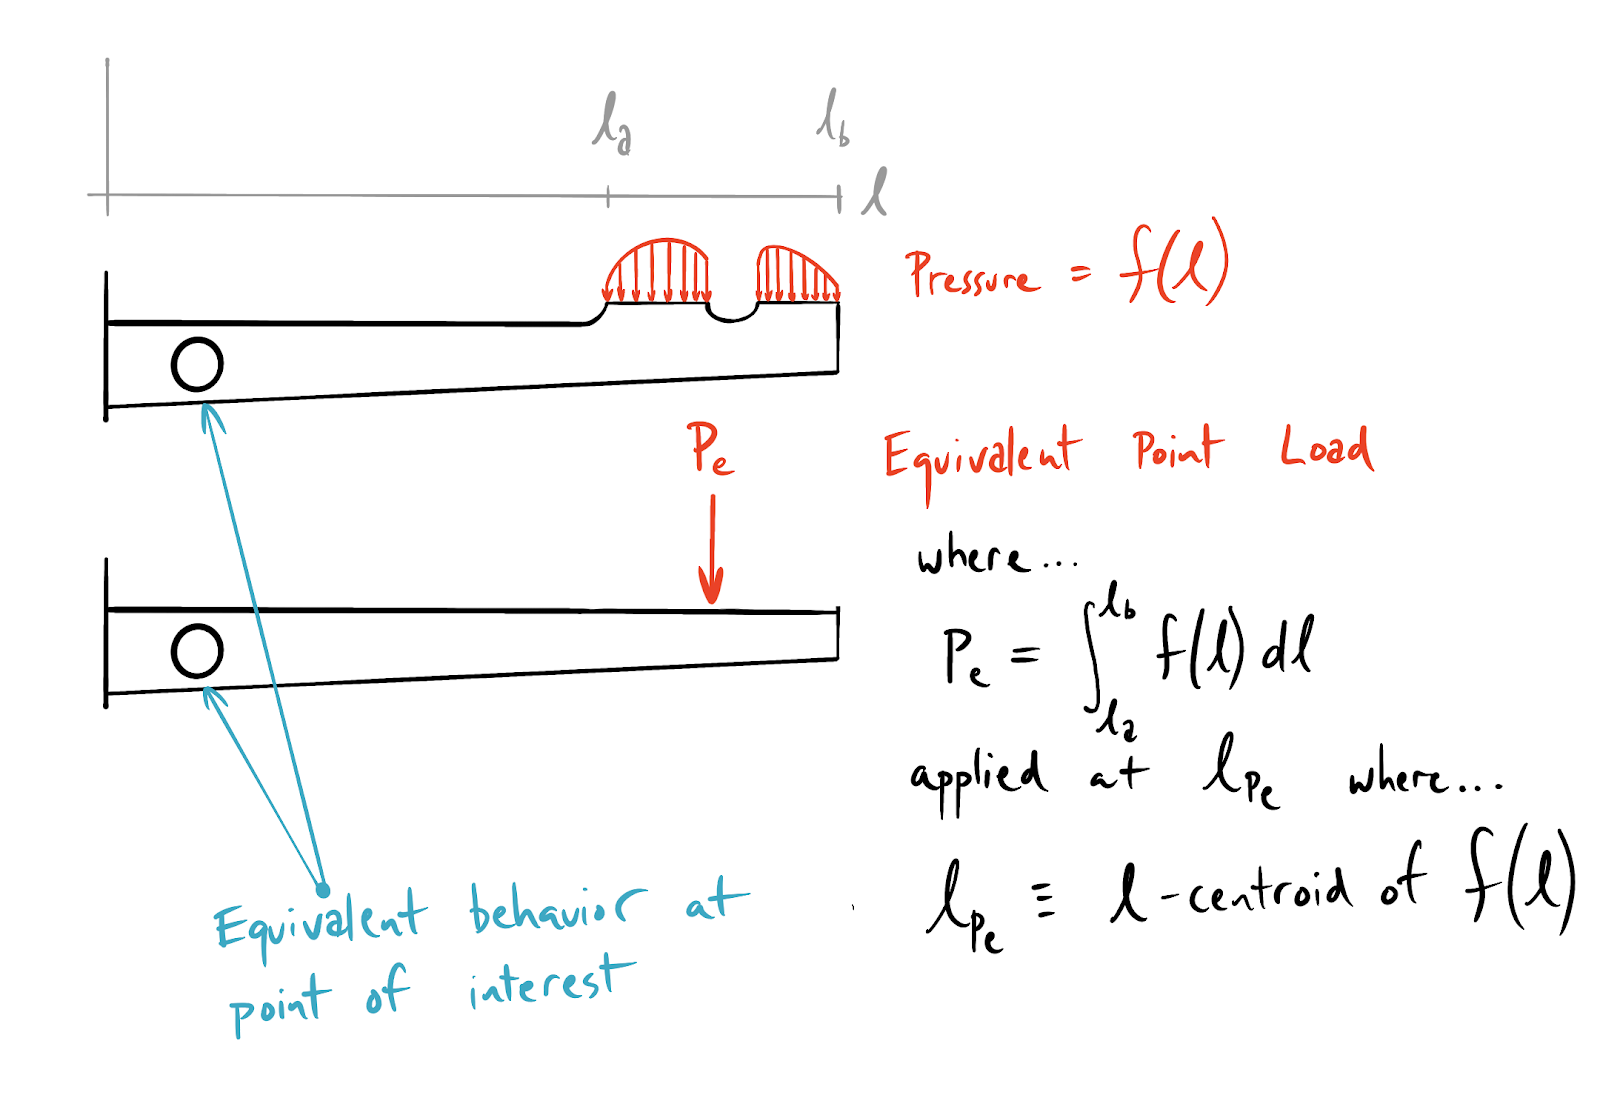 lₐ
l_b
l
Pressure = f(l)
Pₑ
Equivalent Point Load
where...
Pₑ = ∫ₗₐ^l_b f(l) dl
applied at l_Pₑ where...
l_Pₑ ≡ l-centroid of f(l)
Equivalent behavior at
point of interest